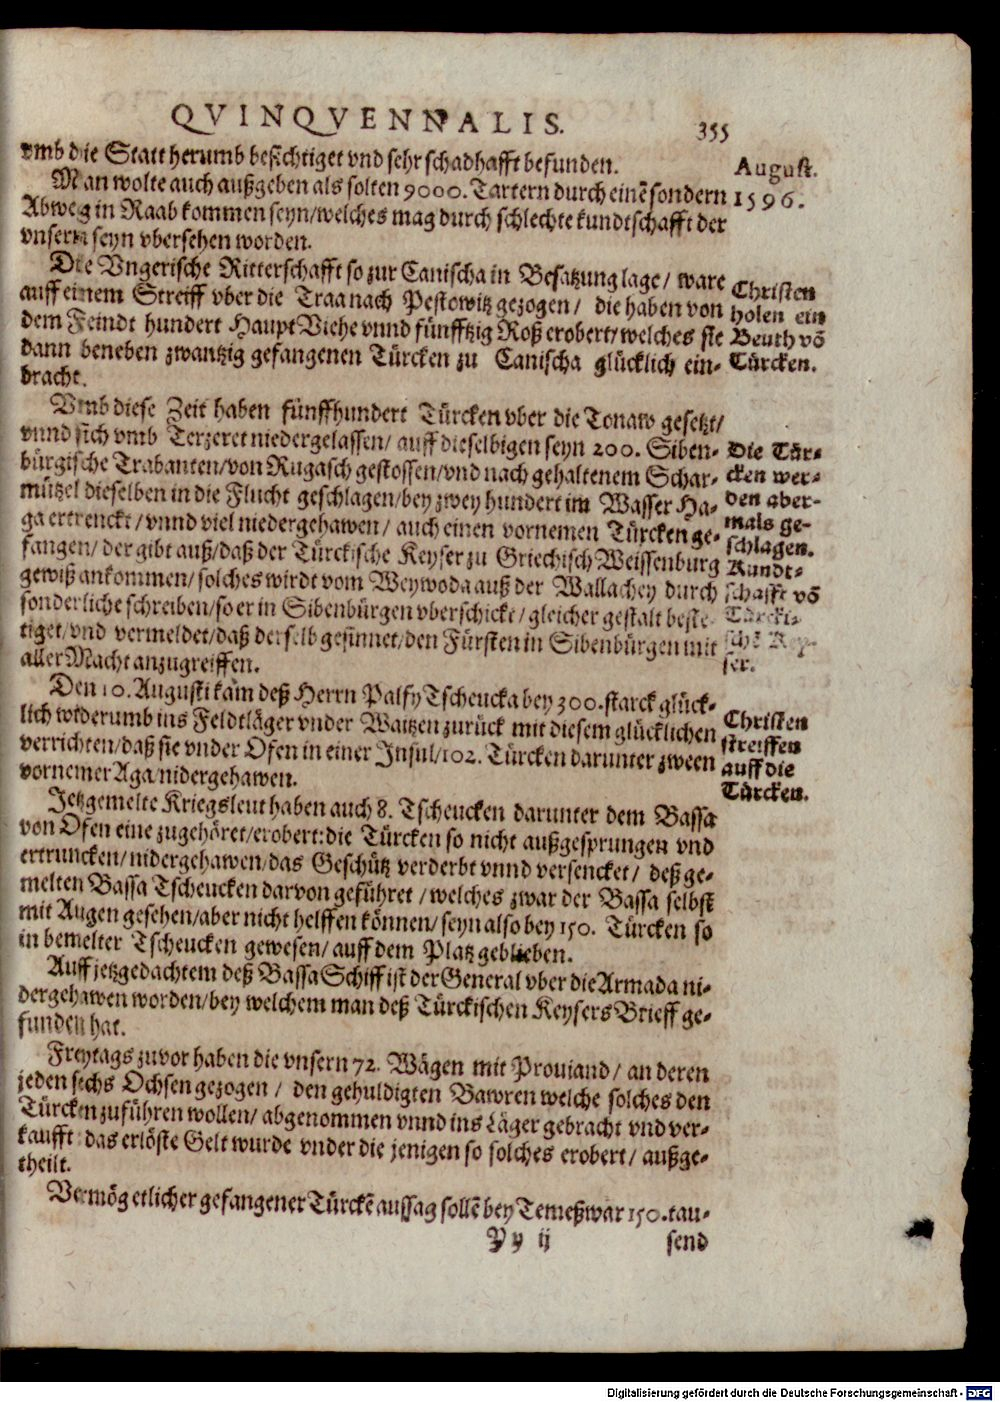 QVINQVENNALIS. 355
vmb die Statt herumb besichtiget vnd sehr schadhafft befunden.
August.
1596.
Man wolte auch außgeben als solten 9000. Tartern durch einẽ sondern
Abweg in Raab kommen seyn/welches mag durch schlechte kundtschafft der
vnsern seyn vbersehen worden.
Die Vngerische Ritterschafft so zur Canischa in Besatzung lage/ ware
auff einem Streiff vber die Traa nach Pestowitz gezogen/ die haben von
dem Feindt hundert Haupt Viehe vnnd fünfftzig Roß erobert/welches sie
dann beneben zwantzig gefangenen Türcken zu Canischa glücklich ein-
bracht.
Christen
holen ein
Beuth võ
Türcken.
Vmb diese Zeit haben fünffhundert Türcken vber die Tonaw gesetzt/
vnnd sich vmb Terzeret niedergelassen/ auff dieselbigen seyn 200. Siben-
bürgische Trabanten/von Rugasch gestossen/vnd nach gehaltenem Schar-
mützel dieselben in die Flucht geschlagen/bey zwey hundert im Wasser Ha-
ga ertrenckt/vnnd viel niedergehawen/ auch einen vornemen Türcken ge-
fangen/ der gibt auß/daß der Türckische Keyser zu Griechisch Weissenburg
gewiß ankommen/solches wirdt vom Weywoda auß der Wallachey durch
sonderliche schreiben/so er in Sibenbürgen vberschickt/gleicher gestalt beste-
tiget/vnd vermeldet/daß derselb gesinnet/den Fürsten in Sibenbürgen mit
aller Macht anzugreiffen.
Die Tür-
cken wer-
den aber-
mals ge-
schlagen.
Kundt-
schafft võ
Türcki-
schẽ Key-
ser.
Den 10. Augusti kam deß Herrn Palfy Tscheucka bey 300. starck glück-
lich widerumb ins Feldtläger vnder Waitzen zurück mit diesem glücklichen
verrichten/daß sie vnder Ofen in einer Insul/102. Türcken darunter zween
vornemer Aga/nidergehawen.
Christen
streiffen
auff die
Türcken.
Jetzgemelte Kriegsleut haben auch 8. Tscheucken darunter dem Bassa
von Ofen eine zugehöret/erobert: die Türcken so nicht außgesprungen vnd
ertruncken/nidergehawen/das Geschütz verderbt vnnd versencket/ deß ge-
melten Bassa Tscheucken darvon geführet/welches zwar der Bassa selbst
mit Augen gesehen/aber nicht helffen können/seyn also bey 150. Türcken so
in bemelter Tscheucken gewesen/auff dem Platz geblieben.
Auff jetzgedachtem deß Bassa Schiff ist der General vber die Armada ni-
dergehawen worden/bey welchem man deß Türckischen Keysers Brieff ge-
funden hat.
Freytags zuvor haben die vnsern 72. Wägen mit Proviand/ an deren
jeden sechs Ochsen gezogen/ den gehuldigten Bawren welche solches den
Türcken zuführen wollen/ abgenommen vnnd ins Läger gebracht vnd ver-
kaufft: das erlöste Gelt wurde vnder die jenigen so solches erobert/ außge-
theilt.
Vermög etlicher gefangener Türckẽ aussag sollẽ bey Temeßwar 150. tau-
Yy ij send
Digitalisierung gefördert durch die Deutsche Forschungsgemeinschaft - DFG